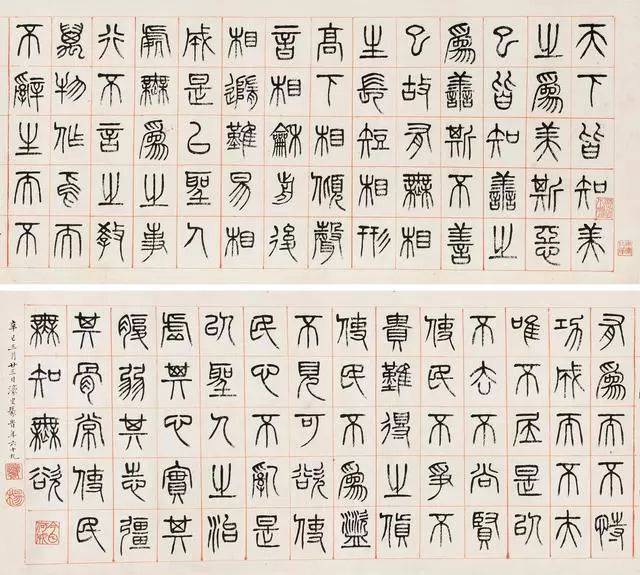 天下皆知美
之為美斯惡
已皆知善之
為善斯不善
已故有無相
生長短相形
高下相傾聲
音相龢前後
相隨難易相
成是以聖人
處無為之事
行不言之教
萬物作焉而
不辭生而不
有為而不恃
功成而不夫
唯不居是以
不去不尚賢
使民不爭不
貴難得之貨
使民不為盜
不見可欲使
民心不亂是
以聖人之治
虛其心實其
腹弱其志彊
其骨常使民
無知無欲
辛巳三月廿三日濠叟篆旹年六十九